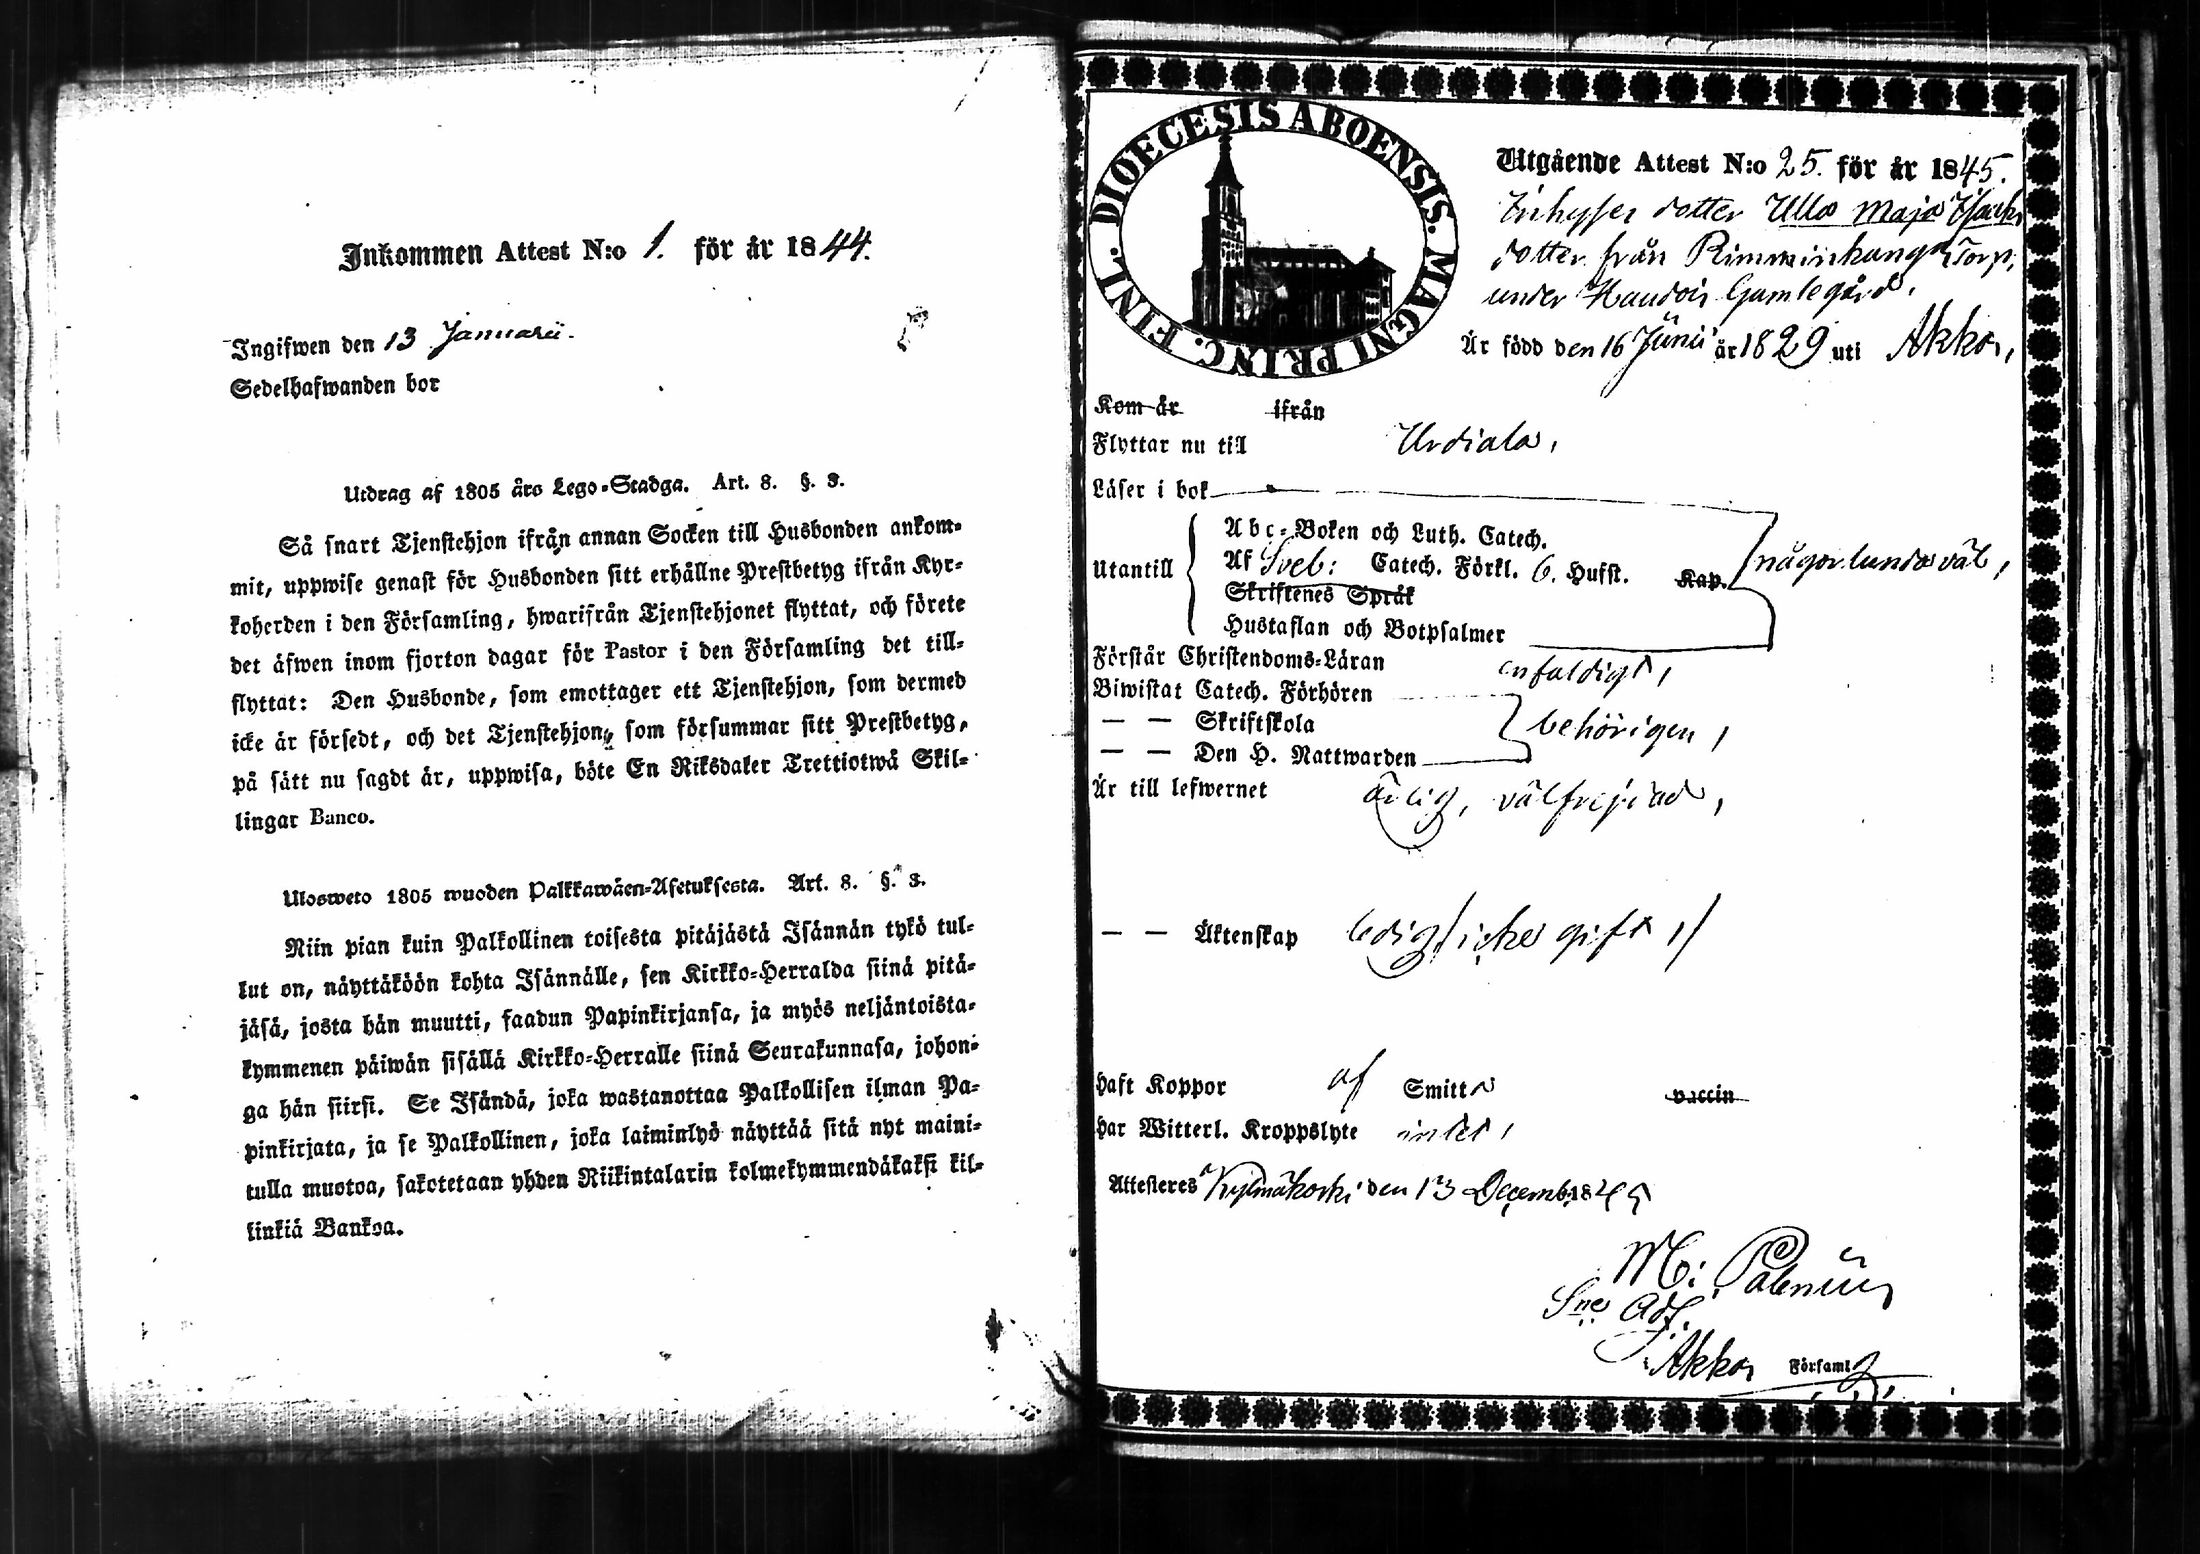 Inkommen Attest N:o 1. för år 1844.
Ingifwen den 13 Januarii.
Sedelhafwanden bor
Utdrag af 1805 års Lego-Stadga. Art. 8. §. 3.
Så snart Tjenstehjon ifrån annan Socken till Husbonden ankom-
mit, uppwise genast för Husbonden sitt erhållne Prestbetyg ifrån Kyr-
koherden i den Församling, hwarifrån Tjenstehjonet flyttat, och förete
det äfwen inom fjorton dagar för Pastor i den Församling det till-
flyttat: Den Husbonde, som emottager ett Tjenstehjon, som dermed
icke är försedt, och det Tjenstehjon, som försummar sitt Prestbetyg,
på sätt nu sagdt är, uppwisa, böte En Riksdaler Trettiotwå Skil-
lingar Banco.
Ulosweto 1805 wuoden Palkkawäen-Asetuksesta. Art. 8. §. 3.
Niin pian kuin Palkollinen toisesta pitäjästä Isännän tykö tul-
lut on, näyttäköön kohta Isännälle, sen Kirkko-Herralda siinä pitä-
jäsä, josta hän muutti, saadun Papinkirjansa, ja myös neljäntoista-
kymmenen päiwän sisällä Kirkko-Herralle siinä Seurakunnasa, johon-
ga hän siirsi. Se Isändä, joka wastanottaa Palkollisen ilman Pa-
pinkirjata, ja se Palkollinen, joka laiminlyö näyttää sitä nyt maini-
tulla muotoa, sakotetaan yhden Riikintalarin kolmekymmendäkaksi kil-
linkiä Bankoa.
DIOECESIS ABOENSIS. MAGNI PRINC. FINL.
Utgående Attest N:o 25. för år 1845.
Inhyses dotter Ulla Maja Isacks
dotter från Rimminkangas Torp,
under Haudois Gamlegård.
Är född den 16 Junii år 1829 uti Akkas,
Kom år ifrån
Flyttar nu till Urdiala,
Läser i bok
Abc-Boken och Luth. Catech.
Utantill Af Sveb: Catech. Förkl. 6. Hufst. Kap. någorlunda väl,
Skriftenes Språk
Hustaflan och Botpsalmer
Förstår Christendoms-Läran enfaldigt,
Biwistat Catech. Förhören
— — Skriftskola behörigen,
— — Den H. Nattwarden
Är till lefwernet ärlig, välfrejdad,
— — Äktenskap ledig/icke gift,/
Haft Koppor af Smitta vaccin
Har Witterl. Kroppslyte intet,
Attesteres Kylmäkoski den 13 Decemb. 1845
M: Palenius
Sne Adj.
i Akkas Församl